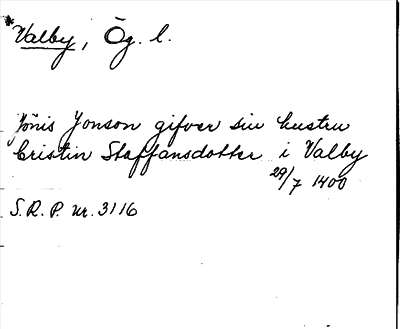 *Valby, Ög. l.
Jönis Jonson gifver sin hustru
Cristin Staffansdotter i Valby
29/7 1400
S.R.P. nr. 3116